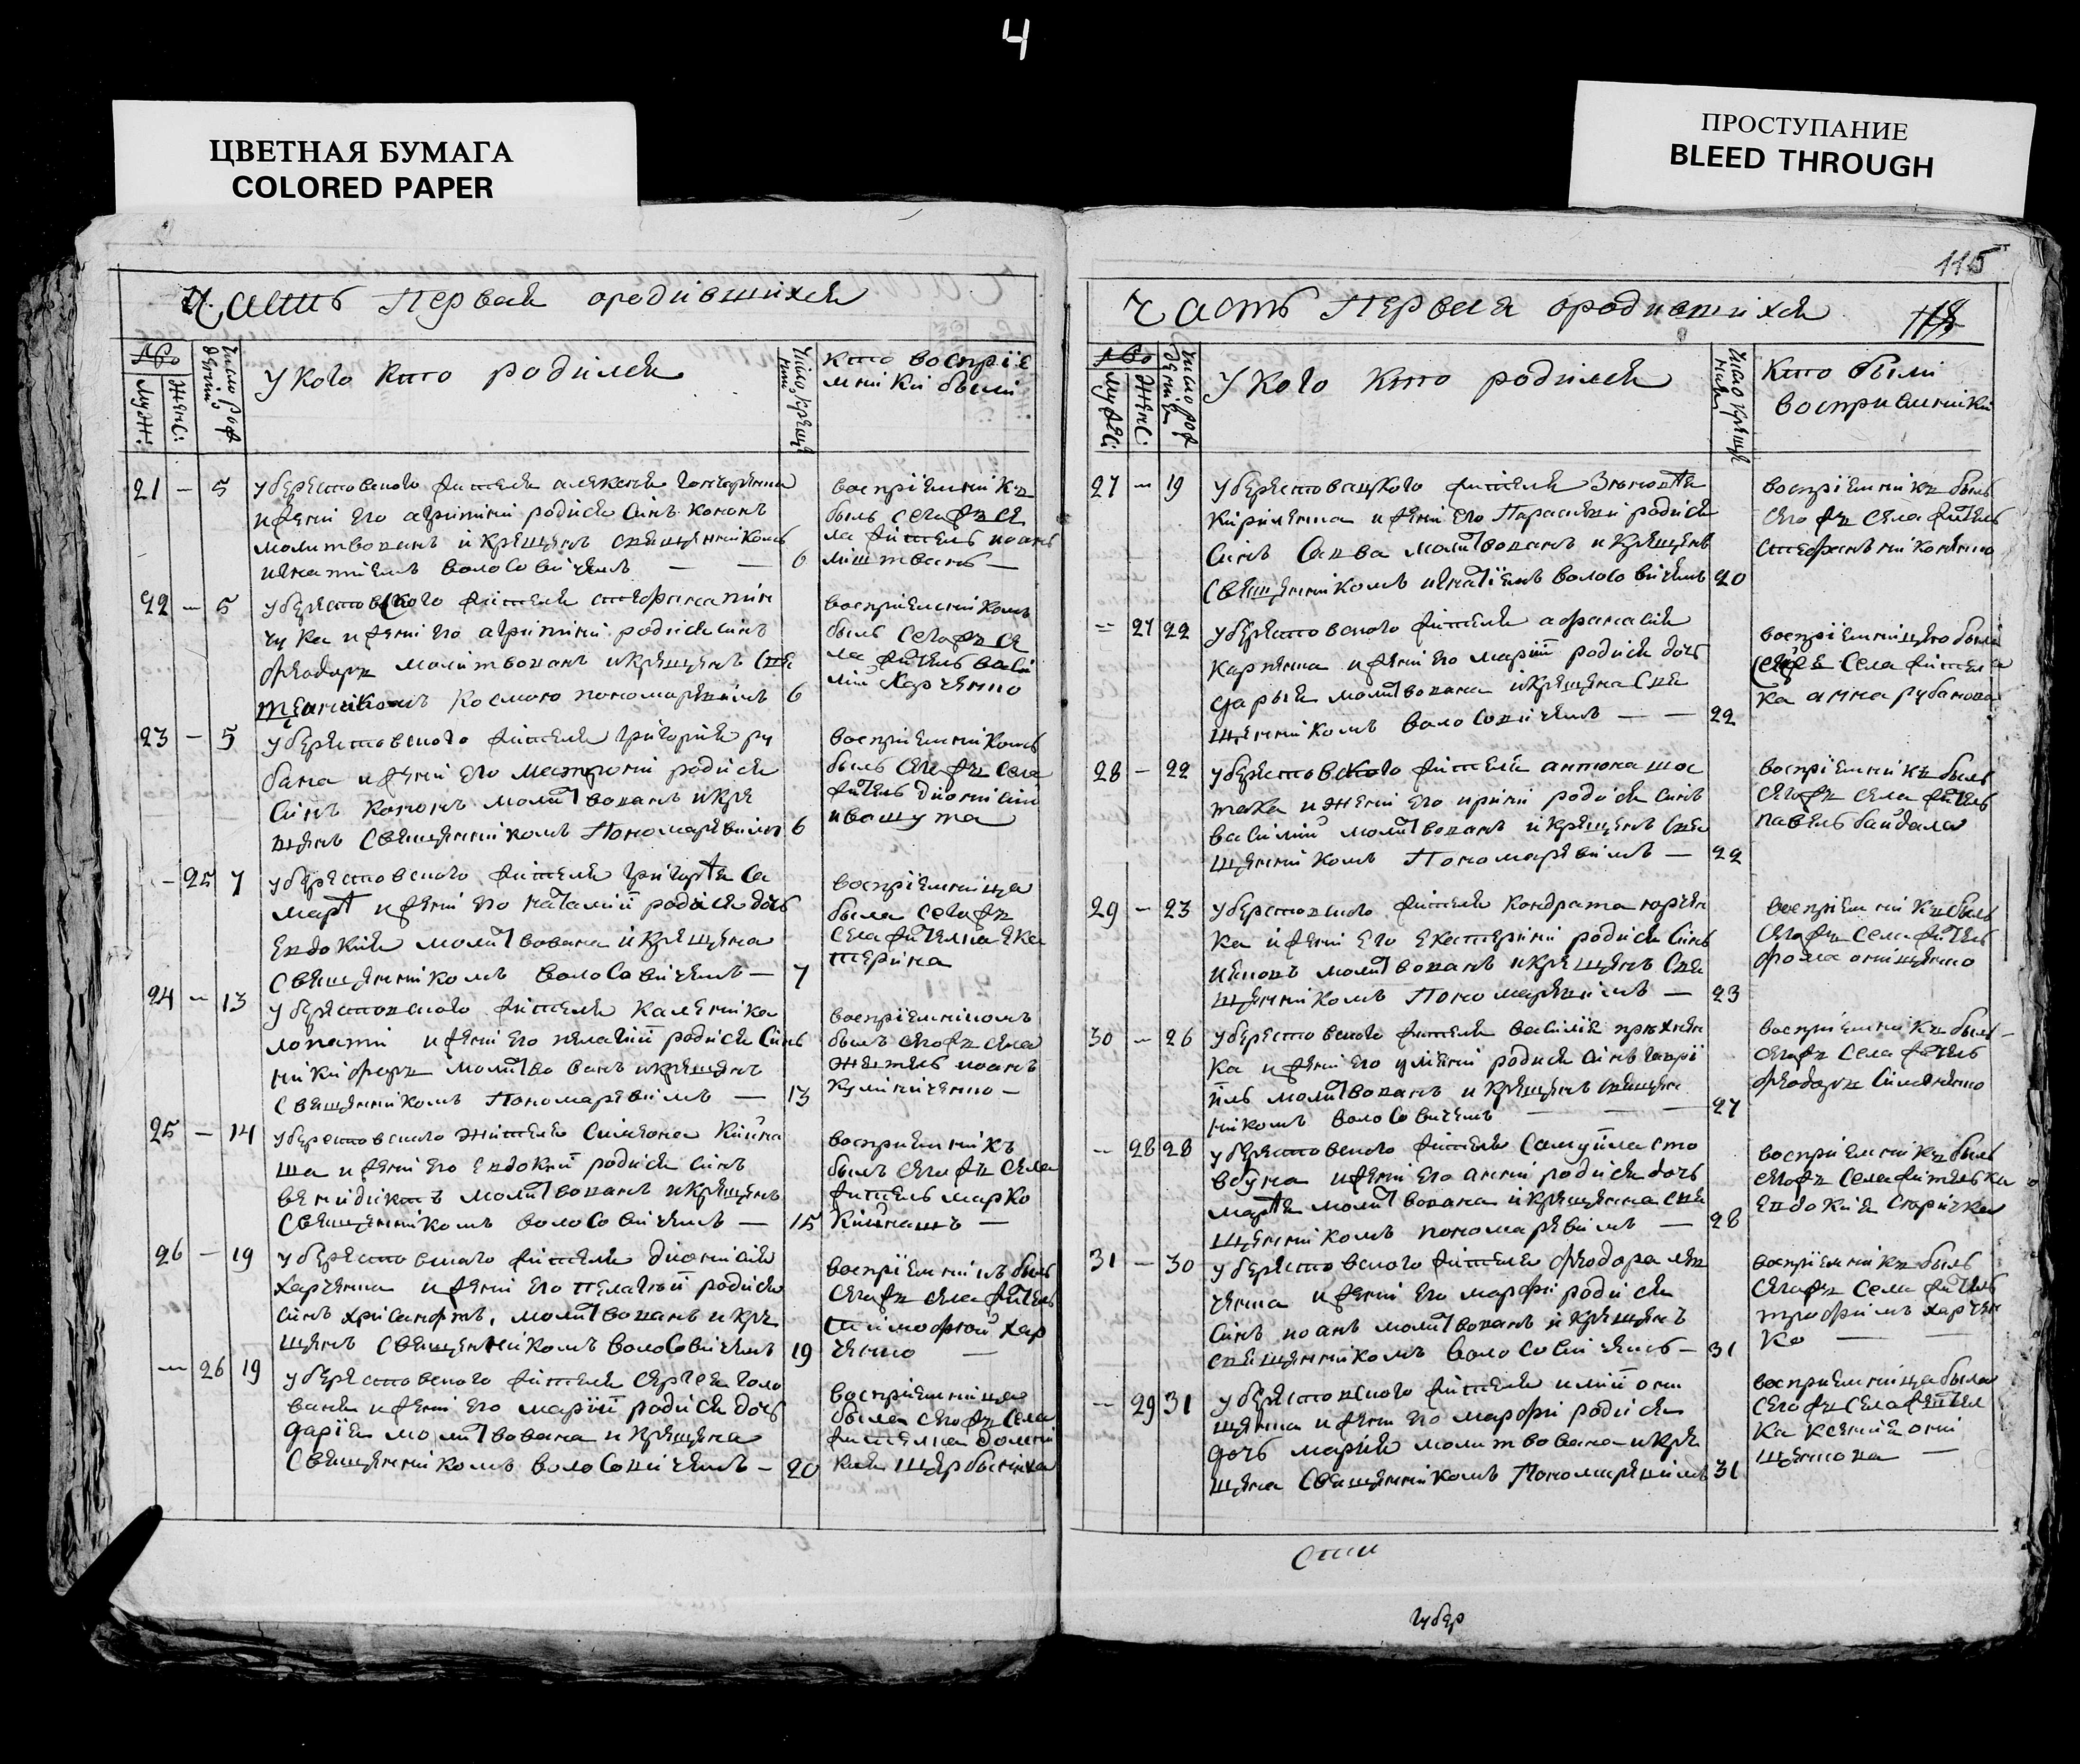 4
ЦВЕТНАЯ БУМАГА
COLORED PAPER
ПРОСТУПАНИЕ
BLEED THROUGH
Часть Первая ородившихся
№
Муж:
Женс:
Число рож
дений
У кого кто родился
Число крещe
ния
кто воспріе
мники были
21 – 5
убереstовского жителя алексея
и жени его агрипини родися синъ кононъ
молитвованъ и крещенъ священникомъ
игнатіемъ волосовичемъ — — 6
воспріемникъ
былъ сегожъ се
ла житель иоанъ
22 – 5
жени его агрипини родися синъ
феодоръ молитвованъ и крещенъ свя
щенникомъ космою пономаревимъ 6
воспріемникомъ
былъ сегожъ се
ла житель васи
лий Харченко
23 – 5
у берестовского жителя григория ру
бана и жени его матрони родися
синъ кононъ молитвованъ и кре
щенъ священникомъ Пономаревимъ 6
воспріемникомъ
былъ сегожъ села
житель дионисий
ивашута
– 25 7
у берестовского жителя григория са
и жени его наталии родися дочъ
евдокия молитвована и крещена
священникомъ волосовичемъ — 7
воспріемница
была сегожъ
села жителка ека
терина
24 – 13
у берестовского жителя каленика
лопати и жени его пелагии родися синъ
никифоръ молитвованъ и крещенъ
священникомъ Пономаревимъ — 13
воспріемникомъ
былъ сегожъ села
житель иоанъ
25 – 14
у берестовского жителя Симеона Кийна
ша и жени его Евдокии родися синъ
венидиктъ молитвованъ и крещенъ
священникомъ волосовичемъ — 15
воспріемникъ
былъ сегожъ села
житель марко
Кийнашъ —
26 – 19
у берестовского жителя дионисия
харченка и жени его пелагии родися
синъ хрисанфтъ, молитвованъ и кре
щенъ священникомъ волосовичемъ 19
воспріемникъ былъ
сегожъ села житель
тимофтей хар
ченко —
– 26 19
у берестовского жителя сергея голо
вани и жени его марии родися дочъ
дария молитвована и крещена
священникомъ волосовичемъ – 20
воспріемница
была сегожъ села
жителка домни
кия
115
Часть Первая ородившихся
№
Мужес:
Женс:
Число рож
дения
У кого кто родился
Число креще
ния
Кто были
восприемники
27 – 19
у берестовацкого жителя
Кириленка и жени его Параскеви родися
синъ Савва молитвованъ и крещенъ
священникомъ игнатіемъ волосовичемъ 20
воспріемникъ былъ
сегожъ села житель
стефанъ никоненко
= 27 22
у берестовского жителя афанасия
карпенка и жени его марии родися дочъ
дария молитвована и крещена свя
щенникомъ волосовичемъ — — 22
воспріемницею была
села жителка
анна рубанова
28 – 22
у берестовского жителя антона шос
така и жени его ирини родися синъ
василий молитвованъ и крещенъ свя
щенникомъ Пономаревимъ — 22
воспріемникъ былъ
сегожъ села житель
павелъ байдала
29 – 23
у берестовского жителя кондрата юрчен
ка и жени его екатерини родися синъ
молитвованъ и крещенъ свя
щенникомъ Пономаревимъ — 23
воспріемникъ былъ
сегожъ села житель
фома онищенко
30 – 26
у берестовского жителя василия
ка и жени его улияни родися синъ гаврі
илъ молитвованъ и крещенъ священ
никомъ волосовичемъ — — — 27
воспріемникъ былъ –
сегожъ села житель
феодоръ Симоненко
– 28 28
у берестовского жителя самуйла сто
вбуна и жени его анни родися дочъ
марfa молитвована и крещенна свя
щенникомъ пономаревимъ — 28
воспріемникъ былъ
сегожъ села жителька
евдокия
31 – 30
у берестовского жителя феодора лев
ченка и жени его марфи родися
синъ иоанъ молитвованъ и крещенъ
священникомъ волосовичемъ – 31
воспріемникъ былъ
сегожъ села житель
трофимъ харчен
ко —
– 29 31
у берестовского жителя илии они
щенка и жени его марфи родися
дочъ мария молитвована и кре
щена священникомъ Пономаревимъ 31
восприемница была
сегожъ села жител
ка ксения они
щенкова —